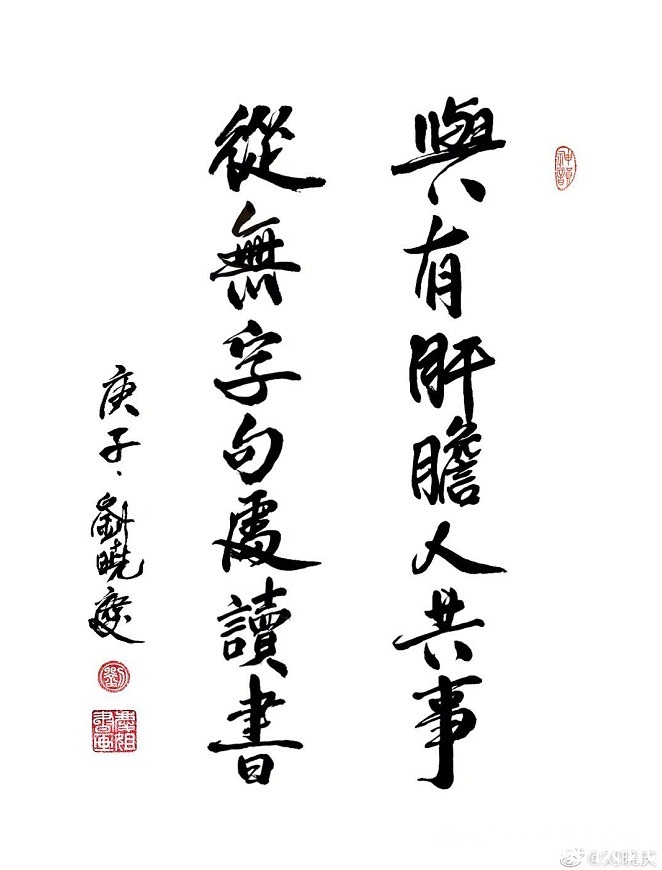 與有肝膽人共事
從無字句處讀書
庚子·劉曉慶
劉
@刘晓庆